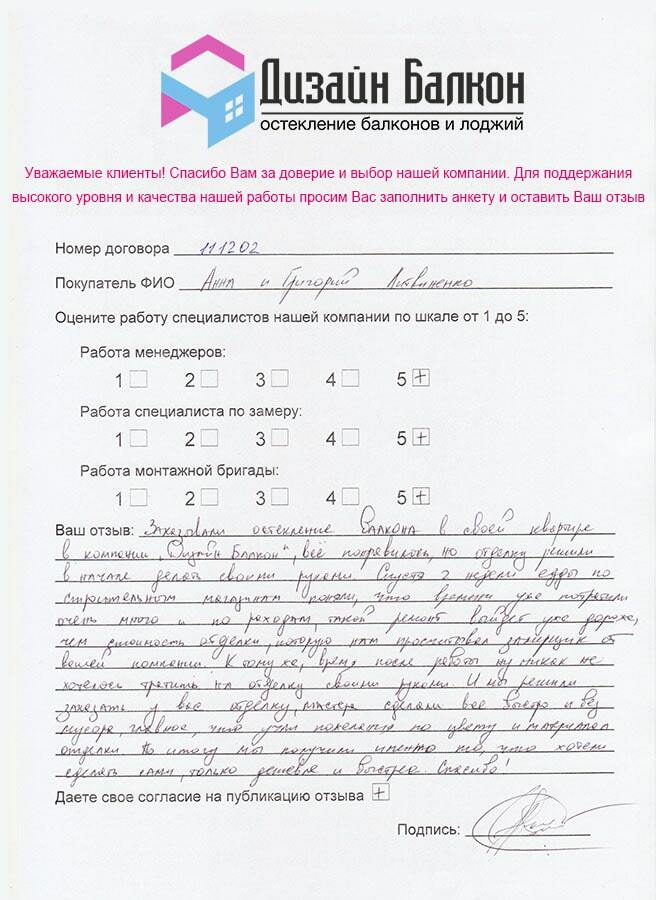 Дизайн Балкон
остекление балконов и лоджий
Уважаемые клиенты! Спасибо Вам за доверие и выбор нашей компании. Для поддержания
высокого уровня и качества нашей работы просим Вас заполнить анкету и оставить Ваш отзыв
Номер договора 111202
Покупатель ФИО Анна и Григорий Литвиненко
Оцените работу специалистов нашей компании по шкале от 1 до 5:
Работа менеджеров:
1 2 3 4 5 +
Работа специалиста по замеру:
1 2 3 4 5 +
Работа монтажной бригады:
1 2 3 4 5 +
Ваш отзыв: Заказывали остекление Балкона в своей квартире
в компании „Дизайн Балкон", всё понравилось, но отделку решили
в начале делать своими руками. Спустя 2 недели езды по
строительным магазинам поняли, что времени уже потратили
очень много и по расходам, такой ремонт выйдет уже дороже,
чем стоимость отделки, которую нам просчитывал замерщик от
вашей компании. К тому же, время после работы ну никак не
хотелось тратить на отделку своими руками. И мы решили
заказать у вас отделку, мастера сделали все быстро и без
мусора, главное, что учли пожелания по цвету и материалам
отделки. По итогу мы получили именно то, что хотели
сделать сами, только дешевле и быстрее. Спасибо!
Даете свое согласие на публикацию отзыва +
Подпись: